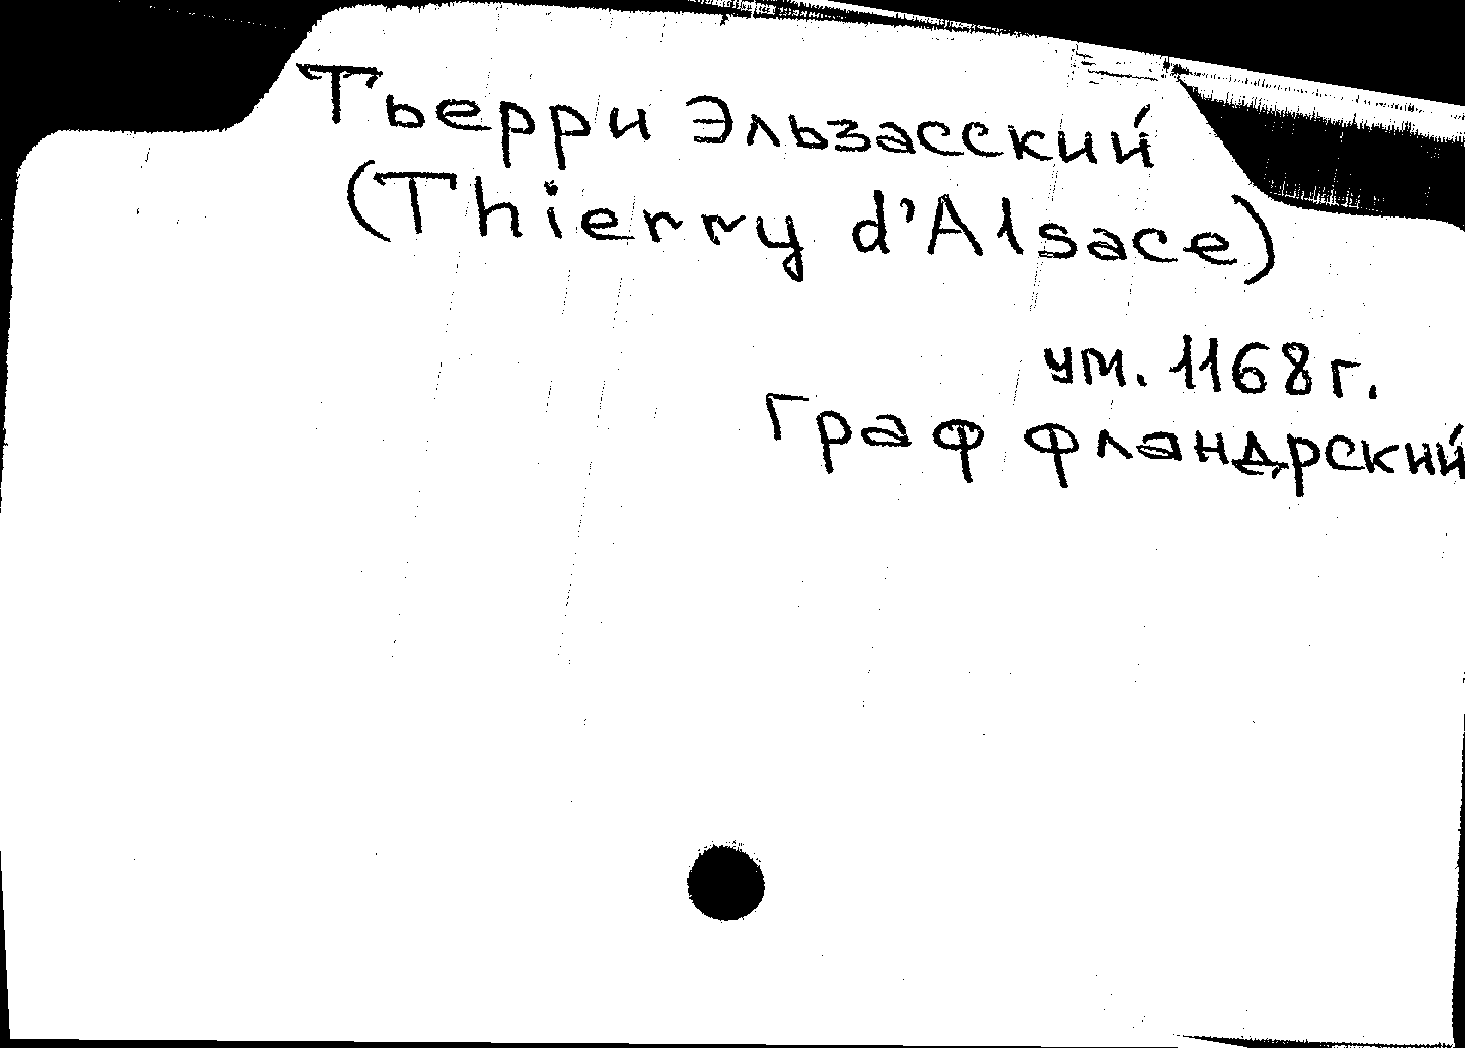 Тьерри Эльзасский
(Thierry d'Alsace)
ум. 1168 г.
Граф фландрский